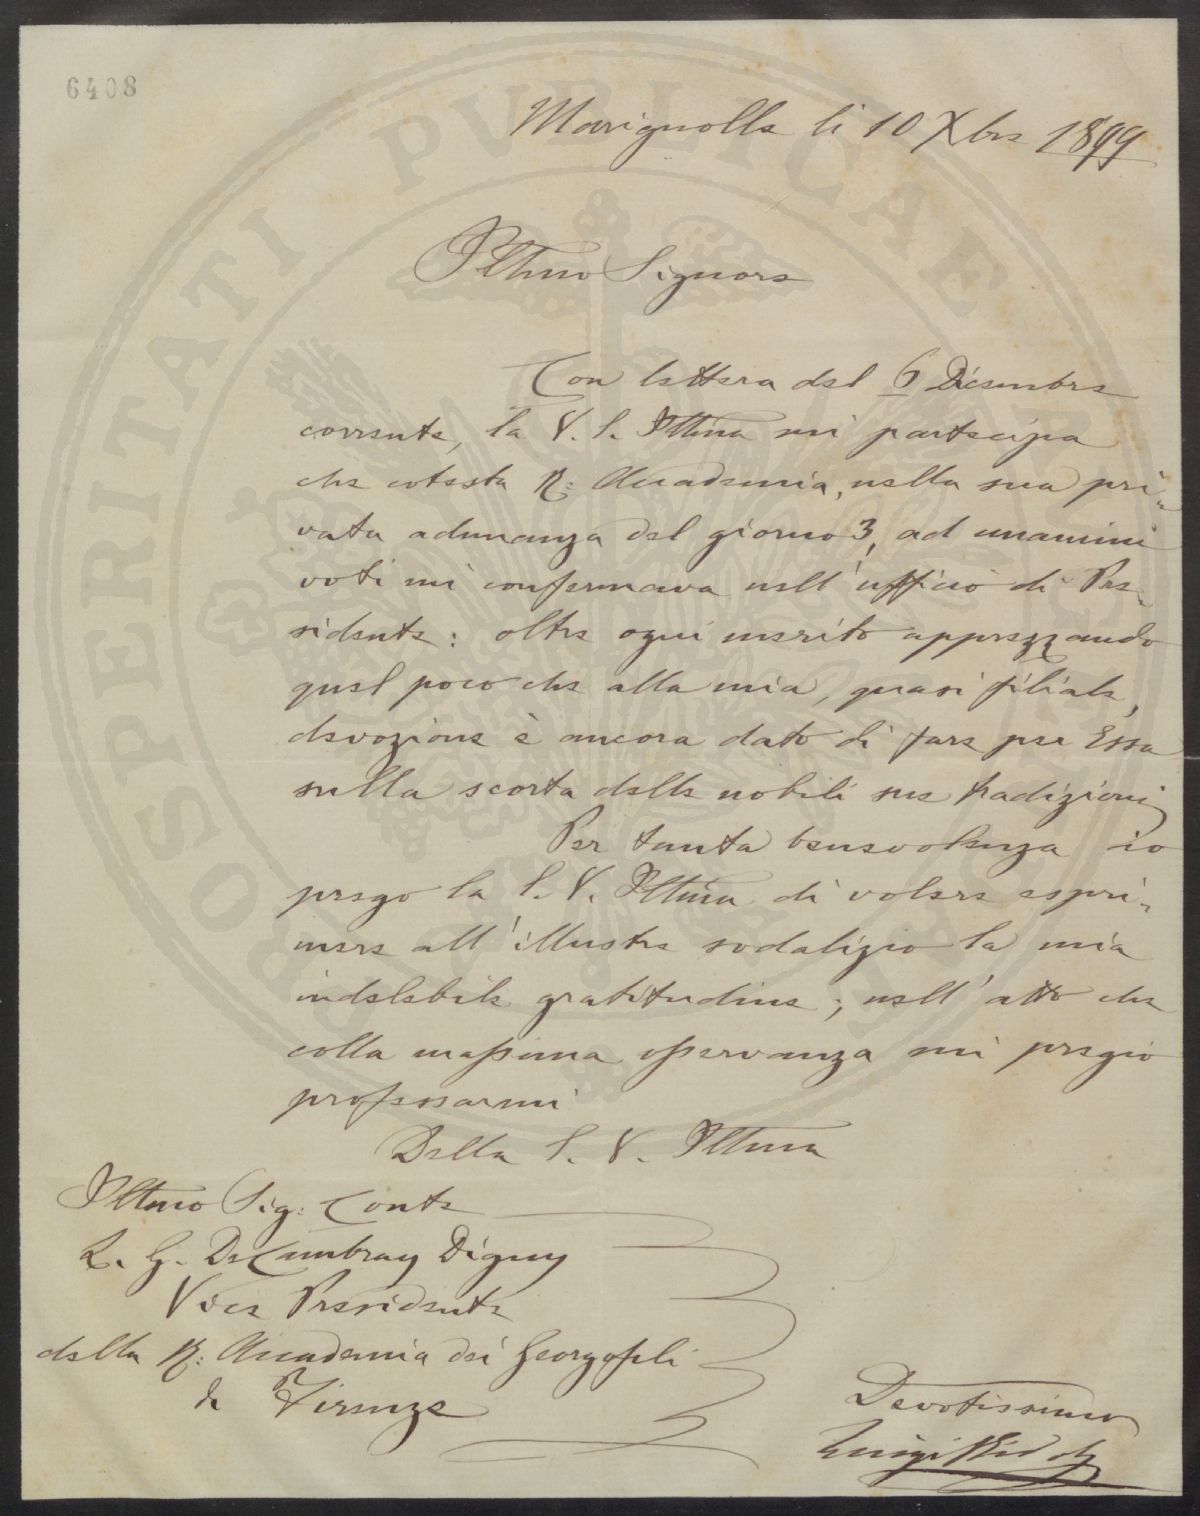 6408
Marignolle li 10 Xbre 1899
Illmo Signore
Con lettera del 6 Dicembre
corrente, la V. S. Illma mi partecipa
che cotesta R: Accademia, nella sua pri-
vata adunanza del giorno 3, ad unanimi
voti mi confermava nell'ufficio di Pre-
sidente: oltre ogni merito apprezzando
quel poco che alla mia, quasi filiale,
devozione è ancora dato di fare per Essa
sulla scorta delle nobili sue tradizioni
Per tanta benevolenza io
prego la S. V. Illma di volere espri-
mere all'illustre sodalizio la mia
indelebile gratitudine; nell'atto che
colla massima osservanza mi pregio
professarmi
Della S. V. Illma
Illmo Sig: Conte
L. G. De Cambray Digny
Vice Presidente
della R: Accademia dei Georgofili
di Firenze
Devotissimo
Luigi Ridolfi
PROSPERITATI PVBLICAE